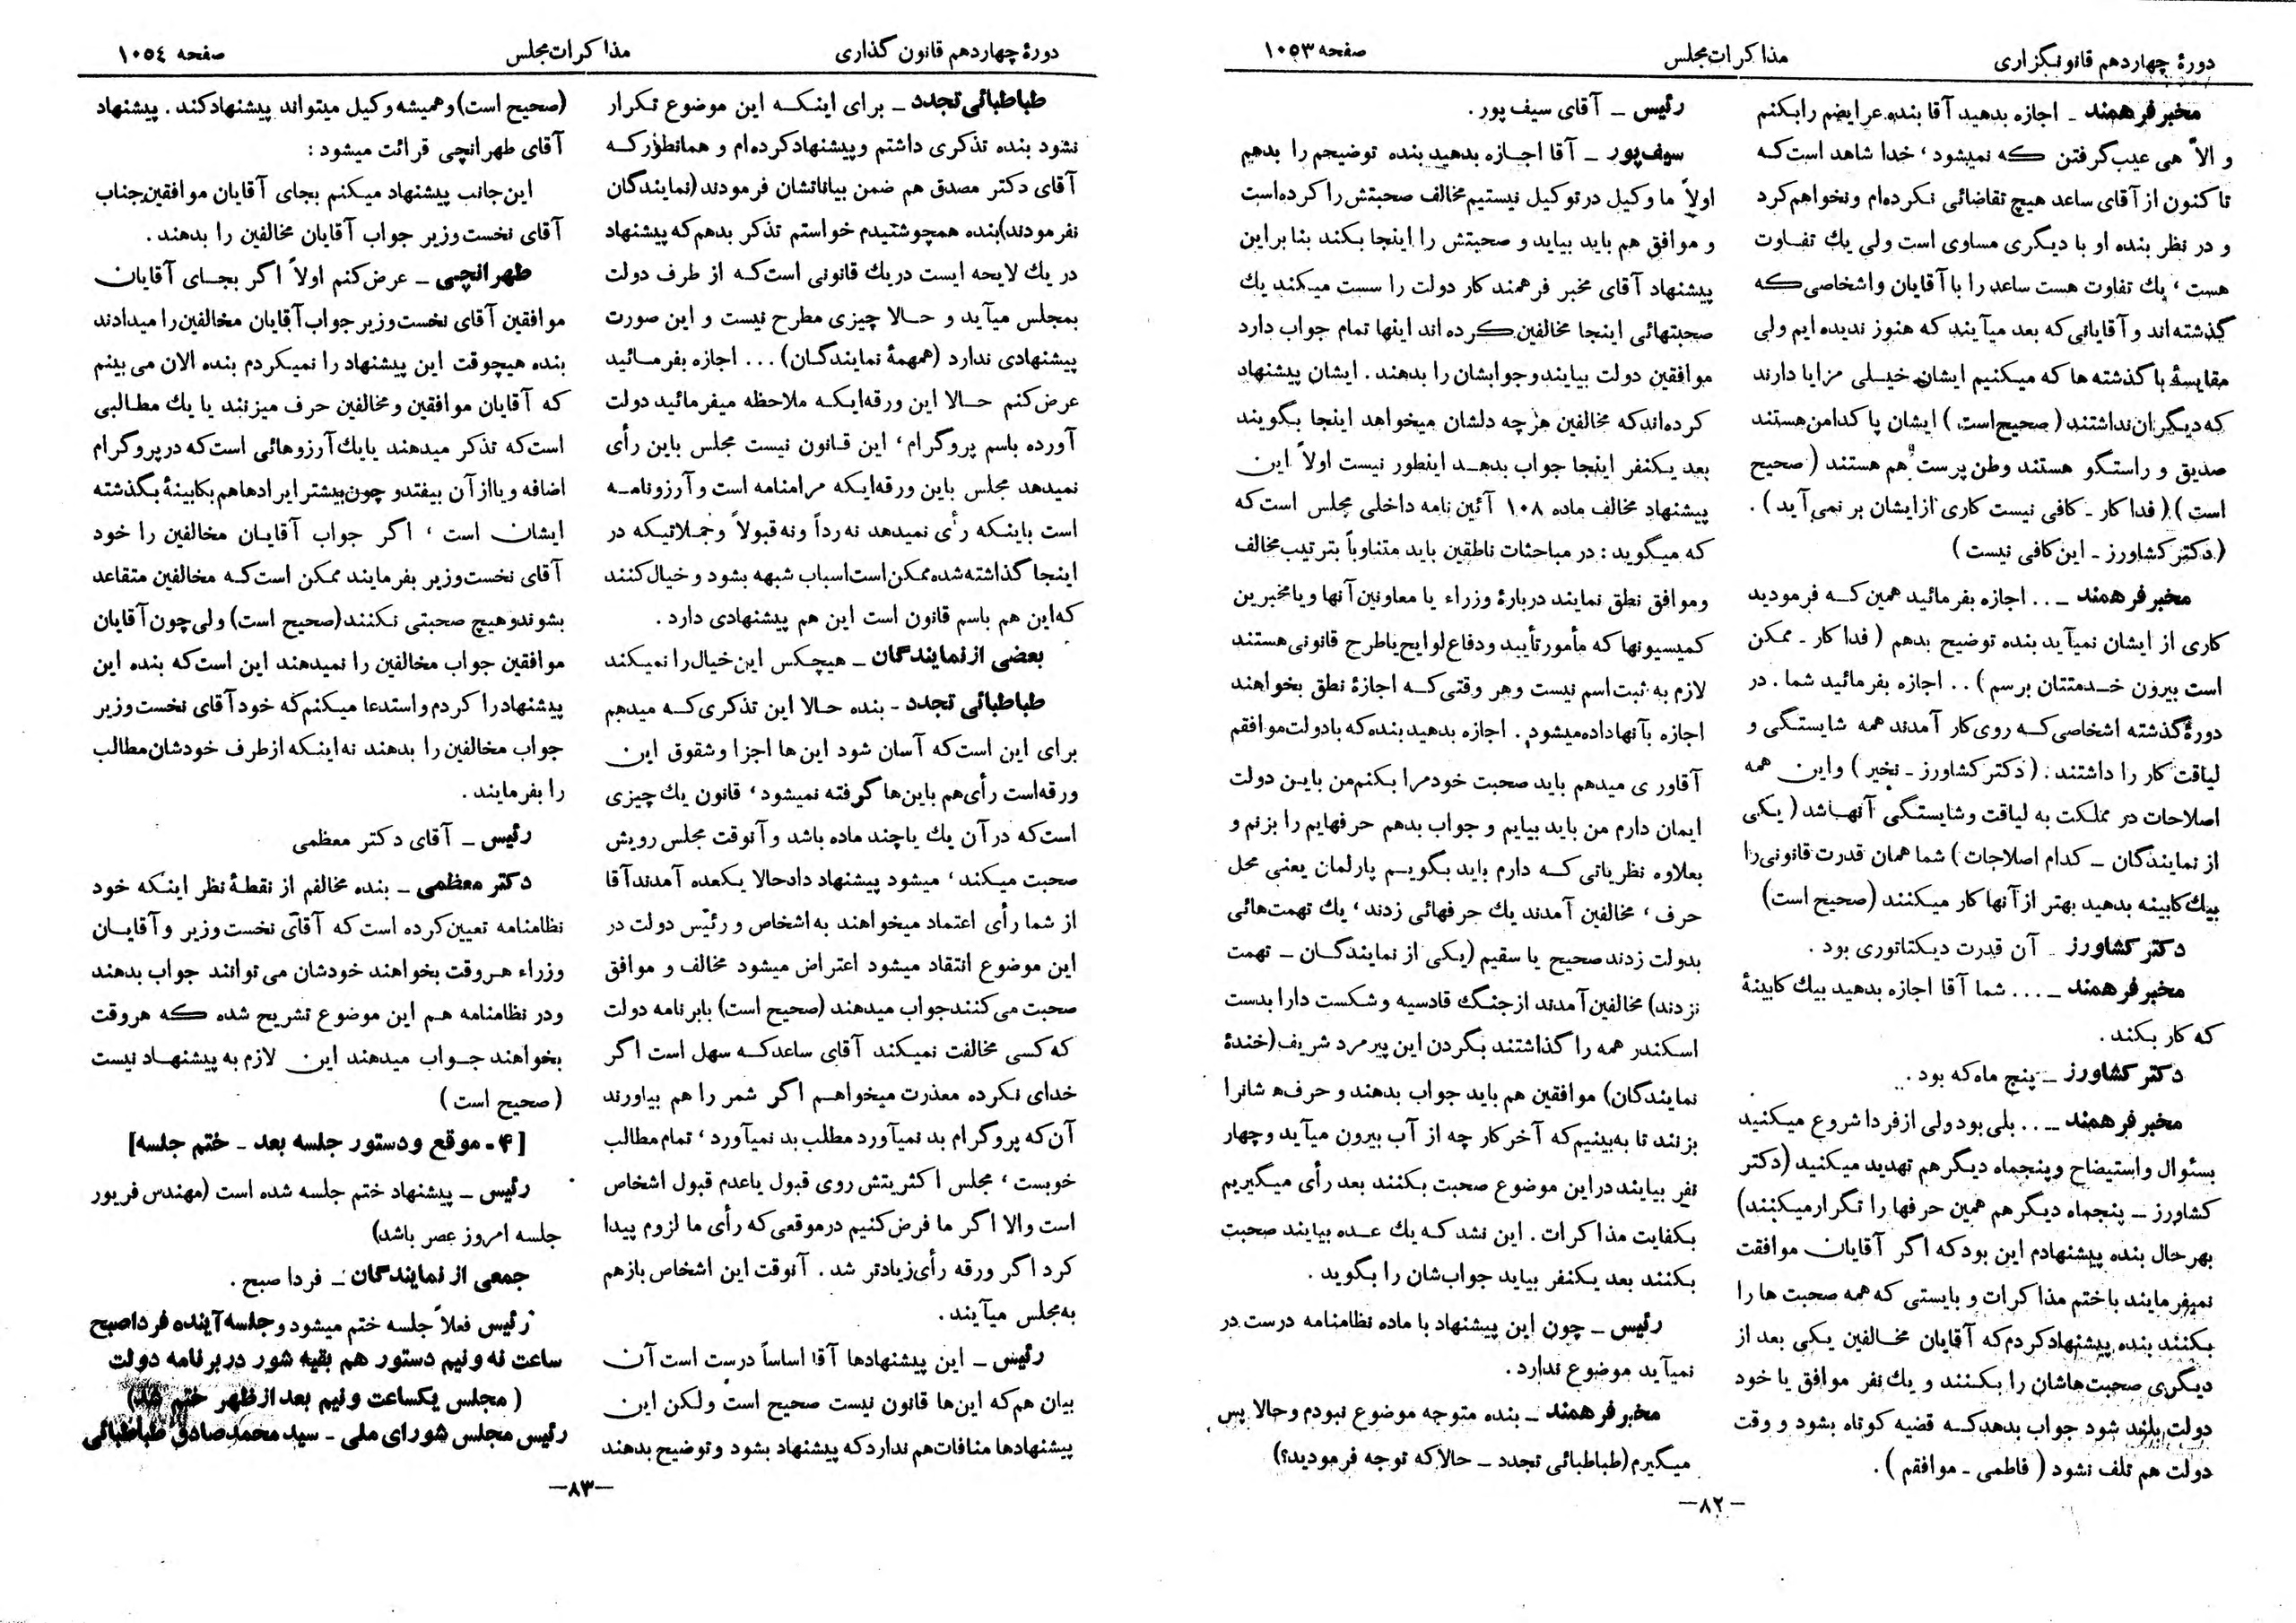 دورهٔ چهاردهم قانونگزاری
مذاکرات مجلس
صفحه ۱۰۵۳
مخبر فرهمند ـ اجازه بدهید آقا بنده عرایضم را بکنم
و الاّ هی عیب گرفتن که نمیشود، خدا شاهد است که
تا کنون از آقای ساعد هیچ تقاضائی نکرده‌ام و نخواهم کرد
و در نظر بنده او با دیگری مساوی است ولی یك تفاوت
هست، یك تفاوت هست ساعد را با آقایان و اشخاصی که
گذشته‌اند و آقایانی که بعد میآیند که هنوز ندیده ایم ولی
مقایسهٔ با گذشته ها که میکنیم ایشان خیلی مزایا دارند
که دیگران نداشتند ( صحیح است ) ایشان پاکدامن هستند
صدیق و راستگو هستند وطن پرست هم هستند ( صحیح
است ) ( فداکار ـ کافی نیست کاری از ایشان بر نمی‌آید ) .
( دکتر کشاورز ـ این کافی نیست )
مخبر فرهمند ـ .. اجازه بفرمائید همین که فرمودید
کاری از ایشان نمیآید بنده توضیح بدهم ( فداکار ـ ممکن
است بیرون خدمتتان برسم ) .. اجازه بفرمائید شما . در
دورهٔ گذشته اشخاصی که روی کار آمدند همه شایستگی و
لیاقت کار را داشتند . ( دکتر کشاورز ـ نخیر ) و این همه
اصلاحات در مملکت به لیاقت و شایستگی آنها شد ( یکی
از نمایندگان ـ کدام اصلاحات ) شما همان قدرت قانونی را
بیك کابینه بدهید بهتر از آنها کار میکنند (صحیح است)
دکتر کشاورز ـ آن قدرت دیکتاتوری بود .
مخبر فرهمند ـ ... شما آقا اجازه بدهید بیك کابینهٔ
که کار بکند .
دکتر کشاورز ـ پنج ماه که بود .
مخبر فرهمند ـ .. بلی بود ولی از فردا شروع میکنید
بسئوال و استیضاح و پنجماه دیگر هم تهدید میکنید (دکتر
کشاورز ـ پنجماه دیگر هم همین حرفها را تکرار میکنند)
بهر حال بنده پیشنهادم این بود که اگر آقایان موافقت
نمیفرمایند با ختم مذاکرات و بایستی که همه صحبت ها را
بکنند بنده پیشنهاد کردم که آقایان مخالفین یکی بعد از
دیگری صحبت‌هاشان را بکنند و یك نفر موافق یا خود
دولت بلند شود جواب بدهد که قضیه کوتاه بشود و وقت
دولت هم تلف نشود ( فاطمی ـ موافقم ) .
رئیس ـ آقای سیف پور .
سیف‌پور ـ آقا اجازه بدهید بنده توضیحم را بدهم
اولاً ما وکیل در توکیل نیستیم مخالف صحبتش را کرده است
و موافق هم باید بیاید و صحبتش را اینجا بکند بنا براین
پیشنهاد آقای مخبر فرهمند کار دولت را سست میکند یك
صحبتهائی اینجا مخالفین کرده اند اینها تمام جواب دارد
موافقین دولت بیایند و جوابشان را بدهند . ایشان پیشنهاد
کرده‌اند که مخالفین هرچه دلشان میخواهد اینجا بگویند
بعد یکنفر اینجا جواب بدهد اینطور نیست اولاً این
پیشنهاد مخالف ماده ۱۰۸ آئین نامه داخلی مجلس است که
که میگوید : در مباحثات ناطقین باید متناوباً بترتیب مخالف
وموافق نطق نمایند دربارهٔ وزراء یا معاونین آنها و یا مخبرین
کمیسیونها که مأمور تأیید و دفاع لوایح یا طرح قانونی هستند
لازم به ثبت اسم نیست وهر وقتی که اجازهٔ نطق بخواهند
اجازه بآنها داده میشود . اجازه بدهید بنده که با دولت موافقم
آقا ور ی میدهم باید صحبت خودم را بکنم من باین دولت
ایمان دارم من باید بیایم و جواب بدهم حرفهایم را بزنم و
بعلاوه نظریاتی که دارم باید بگویم پارلمان یعنی محل
حرف، مخالفین آمدند یك حرفهائی زدند، یك تهمت‌هائی
بدولت زدند صحیح یا سقیم (یکی از نمایندگان ـ تهمت
نزدند) مخالفین آمدند از جنگ قادسیه و شکست دارا بدست
اسکندر همه را گذاشتند بگردن این پیرمرد شریف (خندهٔ
نمایندگان) موافقین هم باید جواب بدهند و حرف‌ه شانرا
بزنند تا به‌بینیم که آخر کار چه از آب بیرون میآید و چهار
نفر بیایند در این موضوع صحبت بکنند بعد رأی میگیریم
بکفایت مذاکرات . این نشد که یك عده بیایند صحبت
بکنند بعد یکنفر بیاید جوابشان را بگوید .
رئیس ـ چون این پیشنهاد با ماده نظامنامه درست در
نمیآید موضوع ندارد .
مخبر فرهمند ـ بنده متوجه موضوع نبودم وحالا پس
میگیرم (طباطبائی تجدد ـ حالا که توجه فرمودید؟)
ـ۸۲ـ
دورهٔ چهاردهم قانون گذاری
مذاکرات مجلس
صفحه ۱۰۵٤
طباطبائی تجدد ـ برای اینکه این موضوع تکرار
نشود بنده تذکری داشتم و پیشنهاد کرده‌ام و همانطور که
آقای دکتر مصدق هم ضمن بیاناتشان فرمودند (نمایندگان
نفرمودند) بنده همچو شنیدم خواستم تذکر بدهم که پیشنهاد
در یك لایحه ایست در یك قانونی است که از طرف دولت
بمجلس میآید و حالا چیزی مطرح نیست و این صورت
پیشنهادی ندارد (همهمهٔ نمایندگان) ... اجازه بفرمائید
عرض کنم حالا این ورقه‌ایکه ملاحظه میفرمائید دولت
آورده باسم پروگرام، این قانون نیست مجلس باین رأی
نمیدهد مجلس باین ورقه‌ایکه مرامنامه است و آرزونامه
است باینکه رأی نمیدهد نه رداً ونه قبولاً وجملاتیکه در
اینجا گذاشته شده ممکن است اسباب شبهه بشود و خیال کنند
که این هم باسم قانون است این هم پیشنهادی دارد .
بعضی از نمایندگان ـ هیچکس این خیال را نمیکند
طباطبائی تجدد ـ بنده حالا این تذکری که میدهم
برای این است که آسان شود این ها اجزا وشقوق این
ورقه‌است رأی هم باین‌ها گرفته نمیشود، قانون یك چیزی
است که در آن یك یا چند ماده باشد و آنوقت مجلس رویش
صحبت میکند، میشود پیشنهاد داد حالا یکعده آمدند آقا
از شما رأی اعتماد میخواهند به اشخاص و رئیس دولت در
این موضوع انتقاد میشود اعتراض میشود مخالف و موافق
صحبت می کنند جواب میدهند (صحیح است) با برنامه دولت
که کسی مخالفت نمیکند آقای ساعد که سهل است اگر
خدای نکرده معذرت میخواهم اگر شمر را هم بیاورند
آن که پروگرام بد نمیآورد مطلب بد نمیآورد، تمام مطالب
خوبست، مجلس اکثریتش روی قبول یا عدم قبول اشخاص
است والا اگر ما فرض کنیم در موقعی که رأی ما لزوم پیدا
کرد اگر ورقه رأی زیادتر شد . آنوقت این اشخاص بازهم
به مجلس میآیند .
رئیس ـ این پیشنهادها آقا اساساً درست است آن
بیان هم که این‌ها قانون نیست صحیح است ولکن این
پیشنهادها منافات هم ندارد که پیشنهاد بشود و توضیح بدهند
(صحیح است) و همیشه وکیل میتواند پیشنهاد کند . پیشنهاد
آقای طهرانچی قرائت میشود :
این‌جانب پیشنهاد میکنم بجای آقایان موافقین جناب
آقای نخست وزیر جواب آقایان مخالفین را بدهند .
طهرانچی ـ عرض کنم اولاً اگر بجای آقایان
موافقین آقای نخست وزیر جواب آقایان مخالفین را میدادند
بنده هیچوقت این پیشنهاد را نمیکردم بنده الان می بینم
که آقایان موافقین و مخالفین حرف میزنند یا یك مطالبی
است که تذکر میدهند یا یك آرزوهائی است که در پروگرام
اضافه و یا از آن بیفتد و چون بیشتر ایرادها هم بکابینهٔ بگذشته
ایشان است، اگر جواب آقایان مخالفین را خود
آقای نخست وزیر بفرمایند ممکن است که مخالفین متقاعد
بشوند و هیچ صحبتی نکنند (صحیح است) ولی چون آقایان
موافقین جواب مخالفین را نمیدهند این است که بنده این
پیشنهاد را کردم و استدعا میکنم که خود آقای نخست وزیر
جواب مخالفین را بدهند نه اینکه از طرف خودشان مطالب
را بفرمایند .
رئیس ـ آقای دکتر معظمی
دکتر معظمی ـ بنده مخالفم از نقطهٔ نظر اینکه خود
نظامنامه تعیین کرده است که آقای نخست وزیر و آقایان
وزراء هروقت بخواهند خودشان می توانند جواب بدهند
ودر نظامنامه هم این موضوع تشریح شده که هروقت
بخواهند جواب میدهند این لازم به پیشنهاد نیست
( صحیح است )
[ ۴ ـ موقع و دستور جلسه بعد ـ ختم جلسه]
رئیس ـ پیشنهاد ختم جلسه شده است (مهندس فریور
جلسه امروز عصر باشد)
جمعی از نمایندگان ـ فردا صبح .
رئیس فعلاً جلسه ختم میشود و جلسه آینده فردا صبح
ساعت نه و نیم دستور هم بقیه شور در برنامه دولت
( مجلس یکساعت و نیم بعد از ظهر ختم شد)
رئیس مجلس شورای ملی ـ سید محمد صادق طباطبائی
ـ۸۳ـ